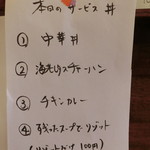 本日のサービス丼
① 中華丼
② 海老レタスチャーハン
③ チキンカレー
④ 残ったスープでリゾット
(リゾットだけ100円)